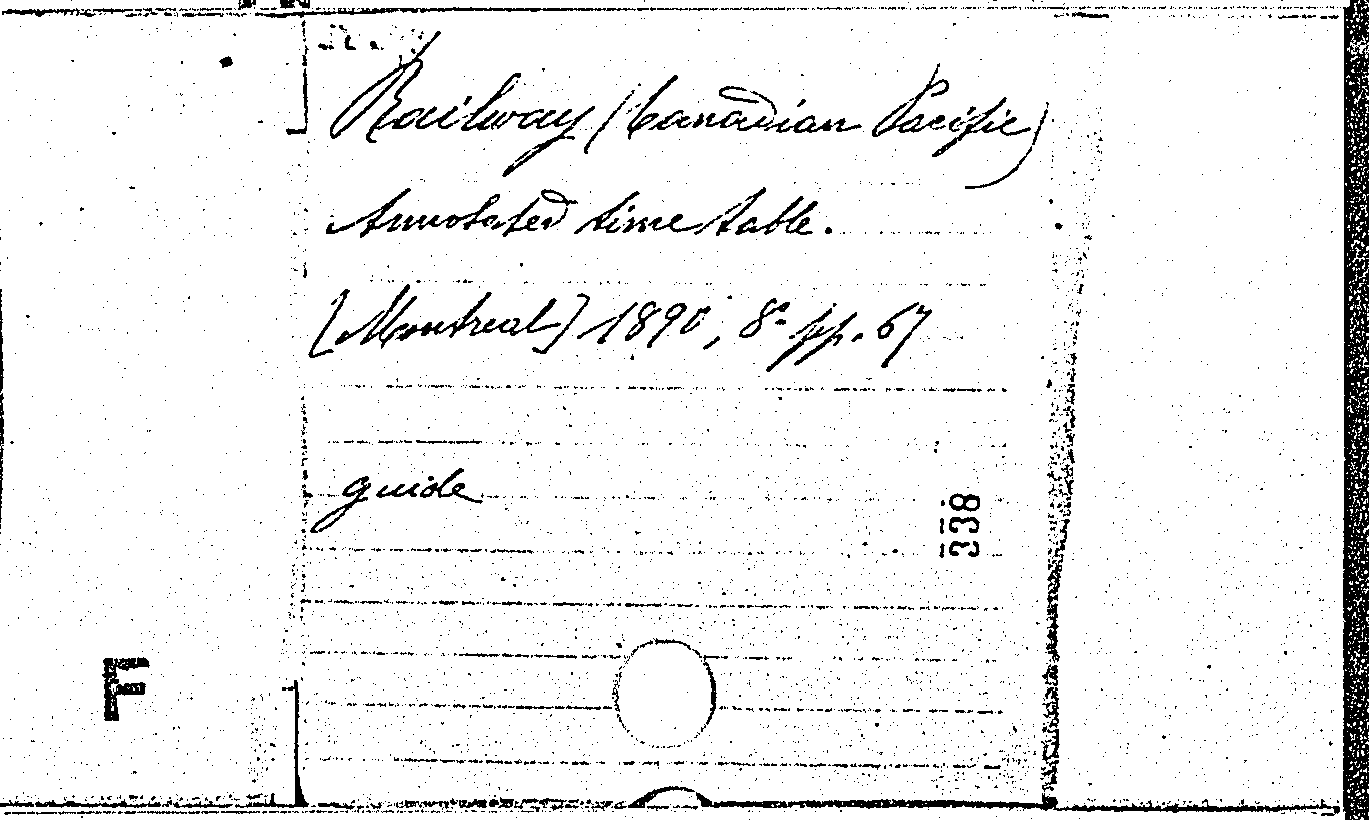 Railway (Canadian Pacific)
Annotated time table.
[Montreal] 1890, 8º pp. 67
guide
338
F